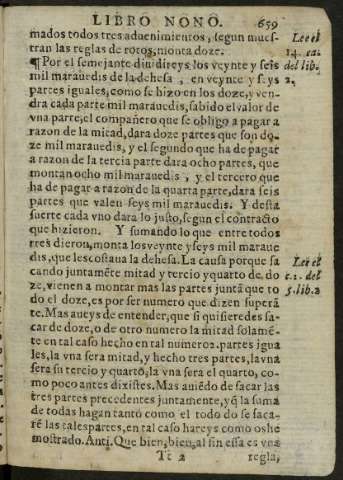 LIBRO NONO. 659
mados todos tres aduenimientos, segun mues-
tran las reglas de rotos, monta doze.
Lee el
14. ca.
del lib.
2.
¶Por el semejante diuidireys los veynte y seis
mil marauedis de la dehesa, en veynte y seys
partes iguales, como se hizo en los doze, y ven-
dra cada parte mil marauedis, sabido el valor de
vna parte, el compañero que se obligo a pagar a
razon de la mitad, dara doze partes que son do-
ze mil marauedis, y el segundo que ha de pagar
a razon de la tercia parte dara ocho partes, que
montan ocho mil marauedis, y el tercero que
ha de pagar a razon de la quarta parte, dara seis
partes que valen seys mil marauedis. Y desta
suerte cada vno dara lo justo, segun el contracto
que hizieron. Y sumando lo que entre todos
tres dieron, monta los veynte y seys mil maraue
dis, que les costaua la dehesa. La causa porque sa
cando juntamẽte mitad y tercio y quarto de do
ze, vienen a montar mas las partes juntas que to
do el doze, es por ser numero que dizen superã
te. Mas aueys de entender, que si quisieredes sa-
car de doze, o de otro numero la mitad solamẽ-
te en tal caso hecho en tal numero 2. partes igua
les, la vna sera mitad, y hecho tres partes, la vna
sera su tercio y quarto, la vna sera el quarto, co-
mo poco antes dixistes. Mas auiẽdo de sacar las
tres partes precedentes juntamente, y q̃ la suma
de todas hagan tanto como el todo do se saca-
rẽ las tales partes, en tal caso hareys como os he
mostrado. Anti. Que bien, bien, al fin essa es vna
Lee el
c. 2. del
5. lib. 2
Tt 2 regla,